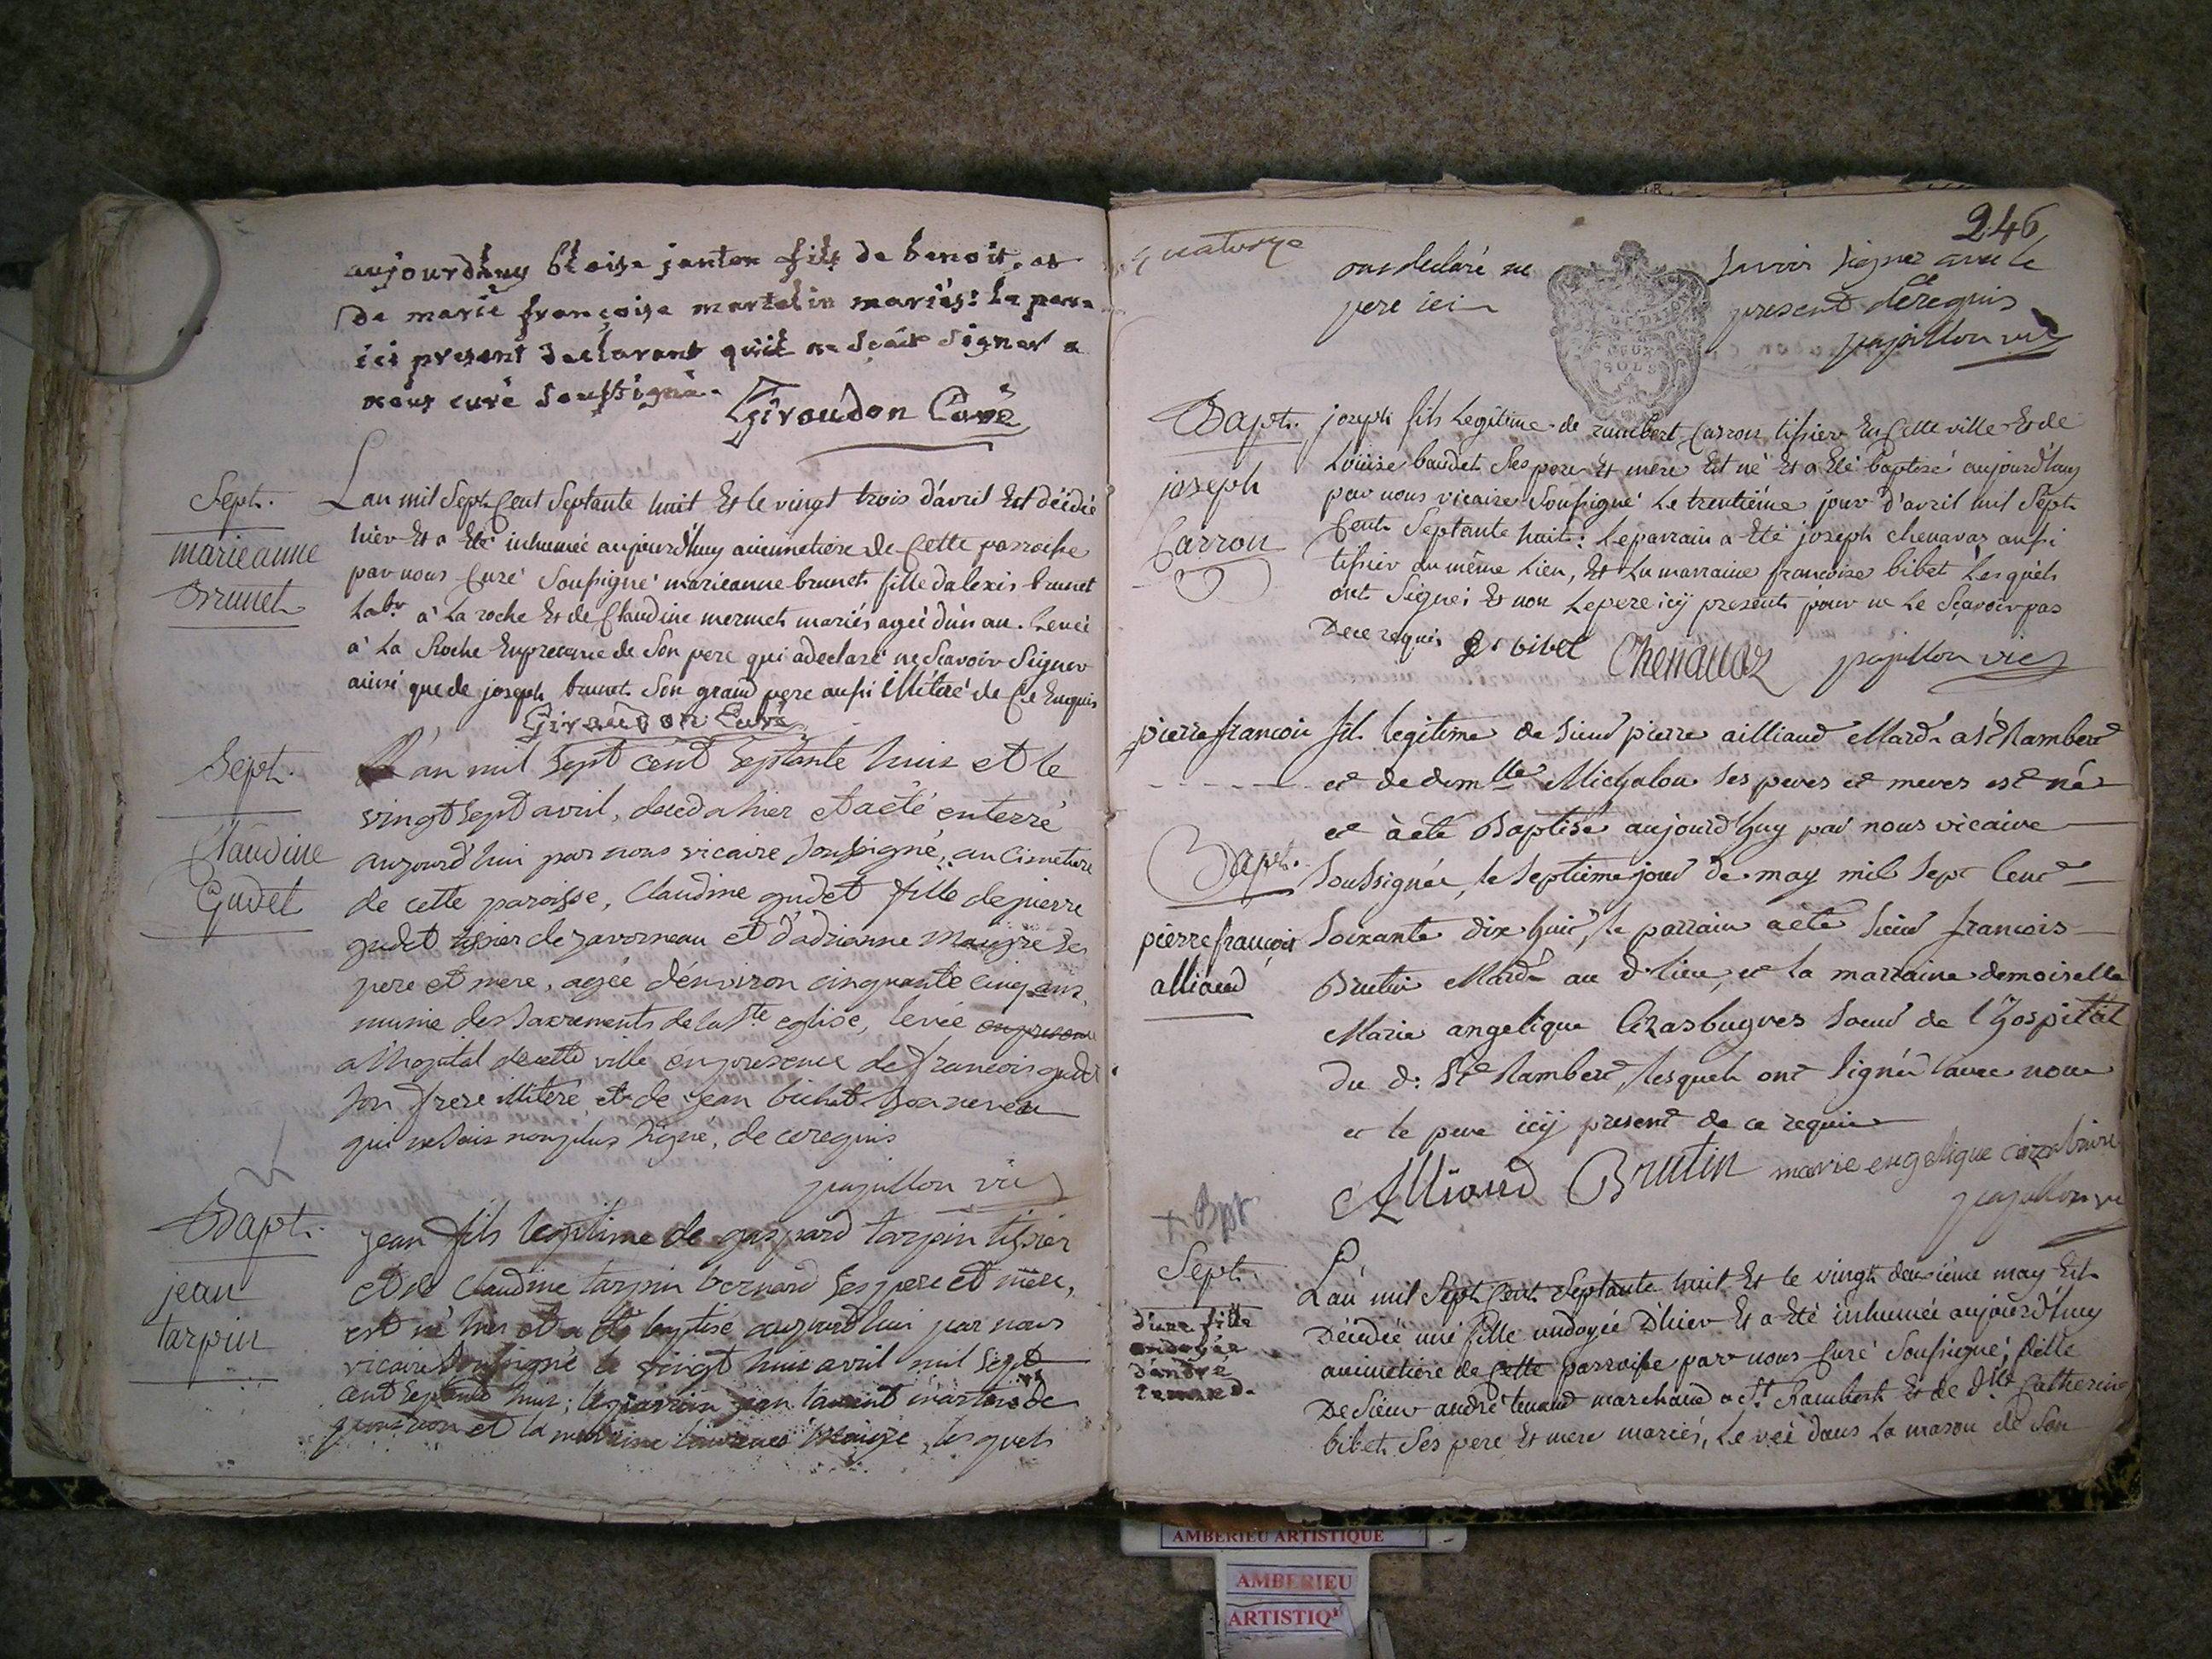 aujourdhuy blaise janton fils de benoit et
de marie françoise martelin mariés: le pere
ici present declarant qu'il ne sçait signer a
nous curé soussigné.
Giraudon Curé
Sept.
marieanne
Brunet
Lan mil Sept Cent Septante huit Et le vingt trois d'avril Est décédée
hier Et a Eté inhumée aujourd'huy au cimetiere de Cette parroisse
par nous Curé Soussigné marieanne brunet fille dalexis brunet
Labr. à La roche Et de Claudine mermet mariés agée d'un an. Levée
à La Roche En presence de Son pere qui a declaré ne Scavoir Signer
ainsi que de joseph brunet Son grand pere aussi illitéré de Ce Enquis
Giraudon Curé
Sept.
Claudine
Gudet
L'an mil Sept cent Septante huit et le
vingt sept avril, deceda hier et a été enterré
aujourd'hui par nous vicaire soussigné, au cimetiere
de cette paroisse, Claudine gudet fille de pierre
gudet tissier de javorneau et d'adrianne maugre ses
pere et mere, agée d'environ cinquante cinq ans,
munie des sacrements de la Ste eglise, levée en presence
a l'hopital de cette ville en presence de francois gudet
son frere illitéré et de jean bichat son neveu
qui ne sais non plus signé, de ce requis
papillon vic
Bapt.
jean
tarpin
jean fils legitime de gaspard tarpin tissier
et de Claudine tarpin bernard ses pere et mere,
est né hier et a été baptisé aujourd'hui par nous
vicaire soussigné le vingt huit avril mil sept
cent septante huit; le parrain jean laurent
et la marraine, lesquels
246
quatorze
ont declaré ne savoir signer avec le
pere ici present de ce requis
papillon vic
DEUX
SOLS
Bapt.
joseph
Carron
joseph fils Legitime de rambert Carron tissier En Cette ville Et de
Loüise baudet Ses pere Et mere Est né Et a Eté baptisé aujourd'huy
par nous vicaire Soussigné Le trentiéme jour d'avril mil Sept
Cent Septante huit: Le parrain a Eté joseph chenavaz aussi
tissier du même Lieu, Et La marraine francoise bibet Lesquels
ont Signé; Et non Le pere icy present pour ne Le Sçavoir pas
De ce requis f. bibet Chenauaz papillon vic
pierre francois fils legitime de sieur pierre ailliaud Mard. a St Rambert
et de demlle Michalon ses peres et meres est né
et à été Baptisé aujourd'huy par nous vicaire
Bapt.
pierre françois
alliaud
soussignée, le septieme jour de may mil sept cent
soixante dix huit, le parrain a été sieur francois
Brutin Mard. au d. lieu, et la marraine demoiselle
Marie angelique soeur de l'hospital
du d. St Rambert, lesquels ont signé avec nous
et le pere icy present de ce requis
Alliaud Brutin marie engelique
papillon vic
+ Bpt
Sept.
d'une fille
ondoyée
d'andré
tenand.
L'an mil Sept Cent Septante huit Et le vingt deuxiéme may Est
Décédée une fille ondoyée D'hier Et a Eté inhumée aujourd'huy
au cimetiere de Cette parroisse par nous Curé Soussigné; fille
De Sieur andré tenand marchand a St. Rambert Et de Dlle Catherine
bibet Ses pere Et mere mariés, Levée dans La maison de Son
AMBERIEU ARTISTIQUE
AMBERIEU
ARTISTIQ